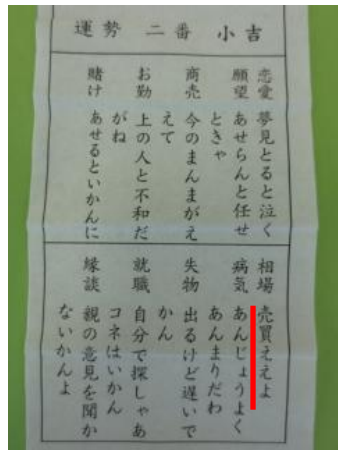 運勢 二番 小吉
恋愛 夢見とると泣く
願望 あせらんと任せ
ときゃ
商売 今のまんまがえ
えて
お勤 上の人と不和だ
がね
賭け あせるといかんに
相場 売買ええよ
病気 あんじょうよく
あんまりだわ
失物 出るけど遅いで
かん
就職 自分で探しゃあ
コネはいかん
縁談 親の意見を聞か
ないかんよ